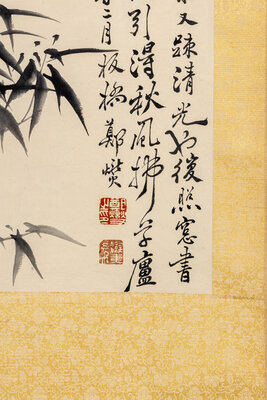 又疎清光後照窓書
引得秋風拂草廬
二月板橋鄭燮